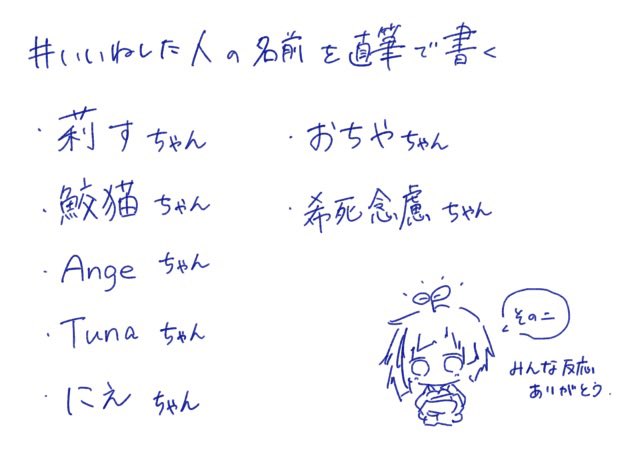 #いいねした人の名前を直筆で書く
・莉すちゃん
・鮫猫ちゃん
・Angeちゃん
・Tunaちゃん
・にえちゃん
・おちやちゃん
・希死念慮ちゃん
その二
みんな反応
ありがとう.